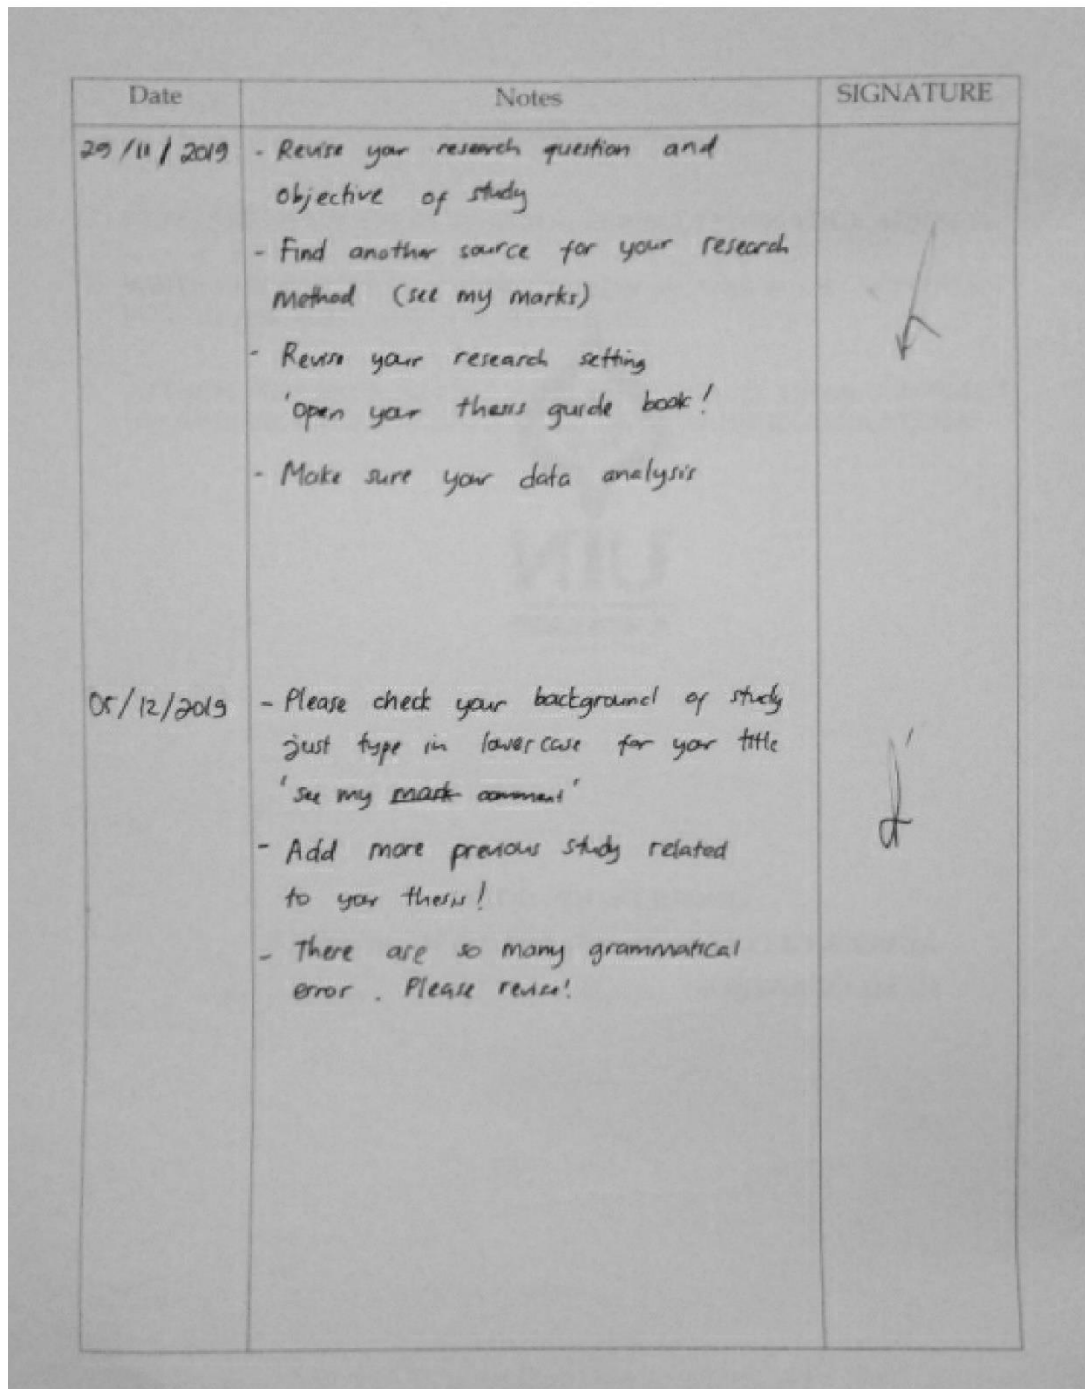 Date Notes SIGNATURE
29/11/2019 - Revise your research question and
objective of study
- Find another source for your research
method (see my marks)
- Revise your research setting
'open your thesis guide book!
- Make sure your data analysis
UIN
05/12/2019 - Please check your background of study
just type in lower case for your title
'see my mark comment'
- Add more previous study related
to your thesis!
- There are so many grammatical
error. Please revise!